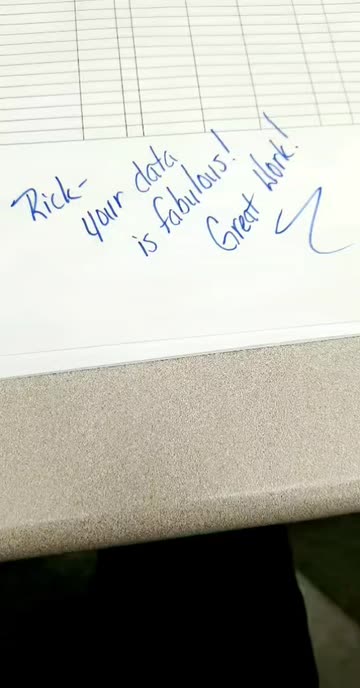 Rick-
your data
is fabulous!
Great Work!